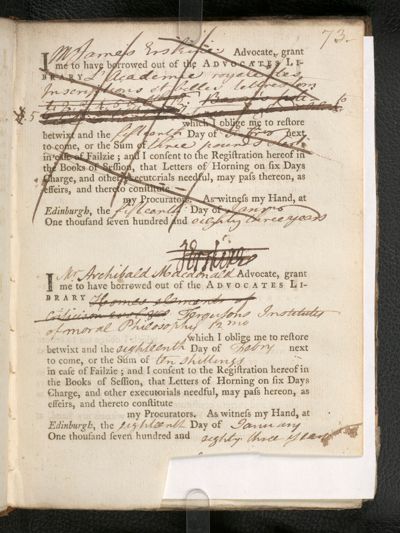 73.
I Mr James Erskine Advocate, grant
me to have borrowed out of the ADVOCATES LI-
BRARY L'Academie royale des
Inscriptions et Belles Lettres
which I oblige me to restore
betwixt and the fifteenth Day of next
to come, or the Sum of three pounds
in case of Failzie; and I consent to the Registration hereof in
the Books of Session, that Letters of Horning on six Days
Charge, and other executorials needful, may pass thereon, as
effeirs, and thereto constitute
my Procurators. As witness my Hand, at
Edinburgh, the fifteenth Day of
One thousand seven hundred and eighty three years
I Mr Archibald Macdonald Advocate, grant
me to have borrowed out of the ADVOCATES LI-
BRARY Homes elements of
Criticism Fergusons Institutes
of moral Philosophy 12mo
which I oblige me to restore
betwixt and the eighteenth Day of Febry next
to come, or the Sum of ten shillings
in case of Failzie; and I consent to the Registration hereof in
the Books of Session, that Letters of Horning on six Days
Charge, and other executorials needful, may pass hereon, as
effeirs, and thereto constitute
my Procurators. As witness my Hand, at
Edinburgh, the eighteenth Day of January
One thousand seven hundred and eighty three years